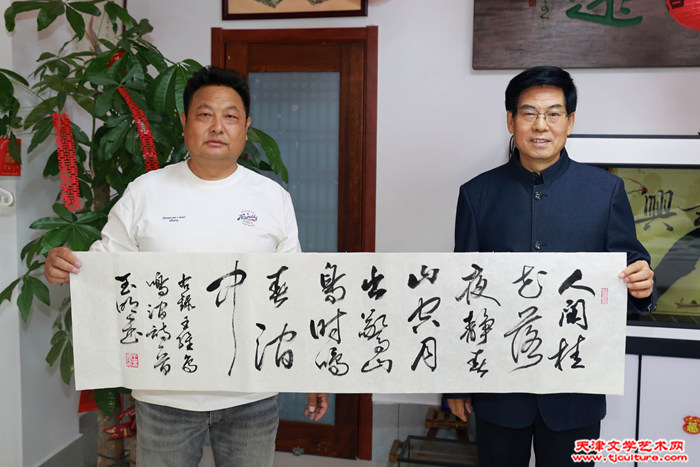 人闲桂
花落
夜静春
山空月
出惊山
鸟时鸣
春涧
中
右录王维鸟
鸣涧诗一首
天津文学艺术网
www.tjculture.com